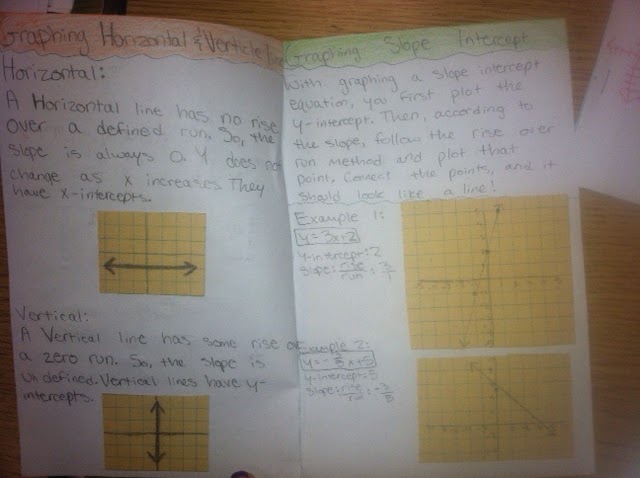 Graphing Horizontal & Verticle
Horizontal:
A Horizontal line has no rise
over a defined run. So, the
slope is always 0. Y does not
change as x increases. They
have x-intercepts.
Vertical:
A Vertical line has some rise
a zero run. So, the slope is
undefined. Vertical lines have y-
intercepts.
Graphing Slope Intercept
With graphing a slope intercept
equation, you first plot the
y-intercept. Then, according to
the slope, follow the rise over
run method and plot that
point. Connect the points, and it
should look like a line!
Example 1:
y=3x+2
y-intercept: 2
slope: rise/run : 3/1
Example 2:
y-intercept: 5
slope: rise/run : -3/5